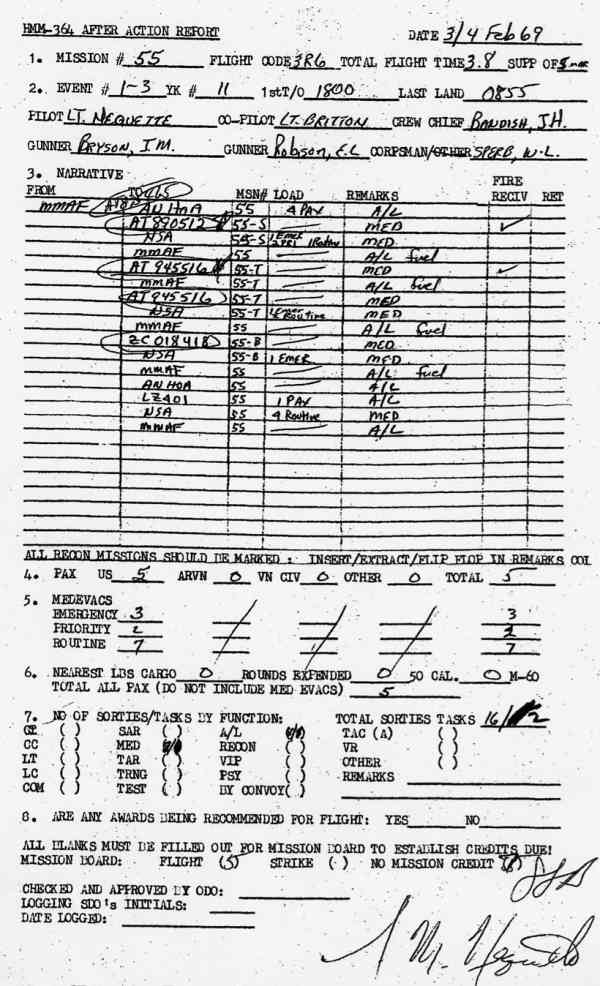 HMM-364 AFTER ACTION REPORT DATE 3/4 Feb 69
1. MISSION # 55 FLIGHT CODE 3R6 TOTAL FLIGHT TIME 3.8 SUPP OF
2. EVENT # 1-3 YK # 11 1st T/O 1800 LAST LAND 0855
PILOT LT. NEQUETTE CO-PILOT LT. BRITTON CREW CHIEF BANDISH, J.H.
GUNNER BRYSON, I M. GUNNER Robison, E.L CORPSMAN/OTHER SPEED, W.L.
3. NARRATIVE
FIRE
FROM MSN# LOAD REMARKS RECIV RET
MMAF AN HOA 55 4 PAX A/L
AT 890512 55-S MED ✓
NSA 55-S 1 EMER MED
MMAF 55 A/L fuel
AT 945516 55-T MED ✓
MMAF 55 A/L fuel
AT 945516 55-T MED
NSA 55-T Routine MED
MMAF 55 A/L fuel
ZC 018418 55-B MED
NSA 55-B 1 EMER MED
MMAF 55 A/L fuel
AN HOA 55 A/L
LZ401 55 1 PAX A/L
NSA 55 4 Routine MED
MMAF 55 A/L
ALL RECON MISSIONS SHOULD BE MARKED : INSERT/EXTRACT/FLIP FLOP IN REMARKS COL
4. PAX US 5 ARVN 0 VN CIV 0 OTHER 0 TOTAL 5
5. MEDEVACS
EMERGENCY 3 3
PRIORITY 2 2
ROUTINE 7 7
6. NEAREST LBS CARGO 0 ROUNDS EXPENDED 0 50 CAL. 0 M-60
TOTAL ALL PAX (DO NOT INCLUDE MED EVACS) 5
7. NO OF SORTIES/TASKS BY FUNCTION: TOTAL SORTIES TASKS 16/
( ) SAR ( ) A/L TAC (A) ( )
CC ( ) MED RECON ( ) VR ( )
LT ( ) TAR ( ) VIP ( ) OTHER ( )
LC ( ) TRNG ( ) PSY ( ) REMARKS
COM ( ) TEST ( ) BY CONVOY( )
8. ARE ANY AWARDS BEING RECOMMENDED FOR FLIGHT: YES NO
ALL BLANKS MUST BE FILLED OUT FOR MISSION BOARD TO ESTABLISH CREDITS DUE!
MISSION BOARD: FLIGHT (5) STRIKE ( ) NO MISSION CREDIT
CHECKED AND APPROVED BY ODO:
LOGGING SDO's INITIALS:
DATE LOGGED: